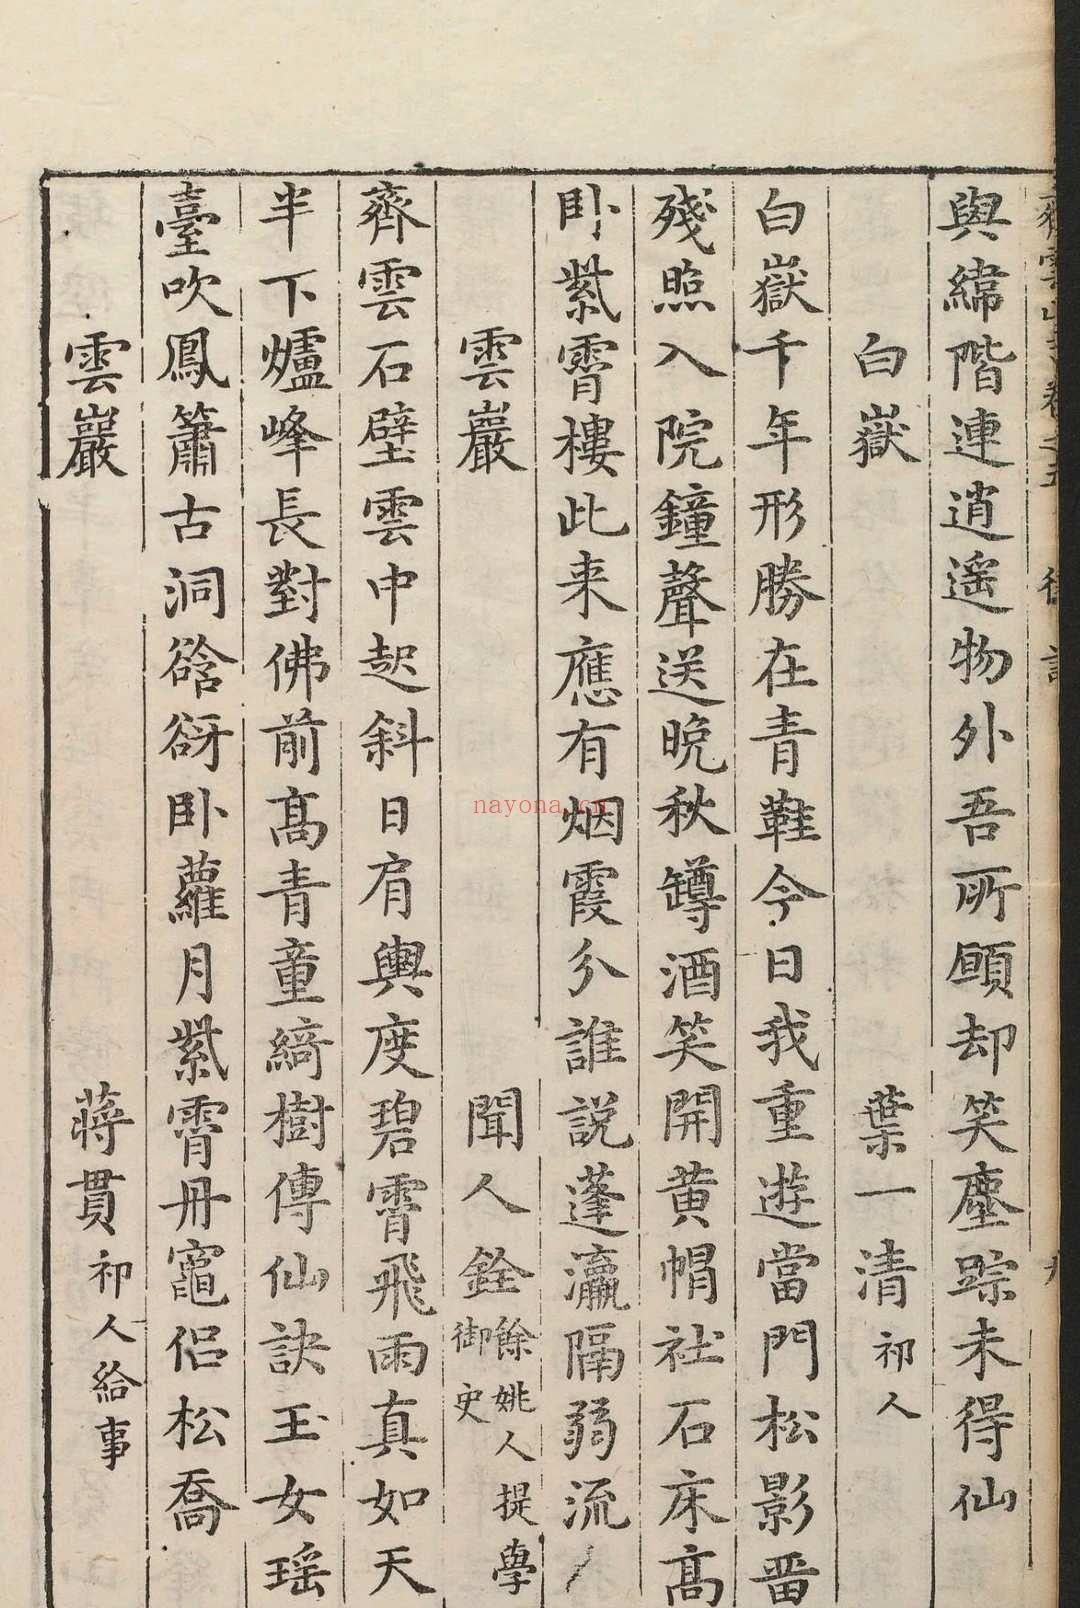 與緯階連逍遥物外吾所願却笑塵踪未得仙
白嶽 葉一清 祁人
白嶽千年形勝在青鞋今日我重遊當門松影畱
殘照入院鐘聲送晚秋罇酒笑開黄帽社石床髙
卧紫霄樓此来應有烟霞分誰説蓬瀛隔弱流
雲巖 聞人銓 餘姚人提學御史
齊雲石壁雲中起斜日肩輿度碧霄飛雨真如天
半下爐峰長對佛前髙青童綺樹傳仙訣玉女瑶
臺吹鳳簫古洞谽谺卧蘿月紫霄丹竈侣松喬
雲巖 蒋貫 祁人給事
nayona.cn